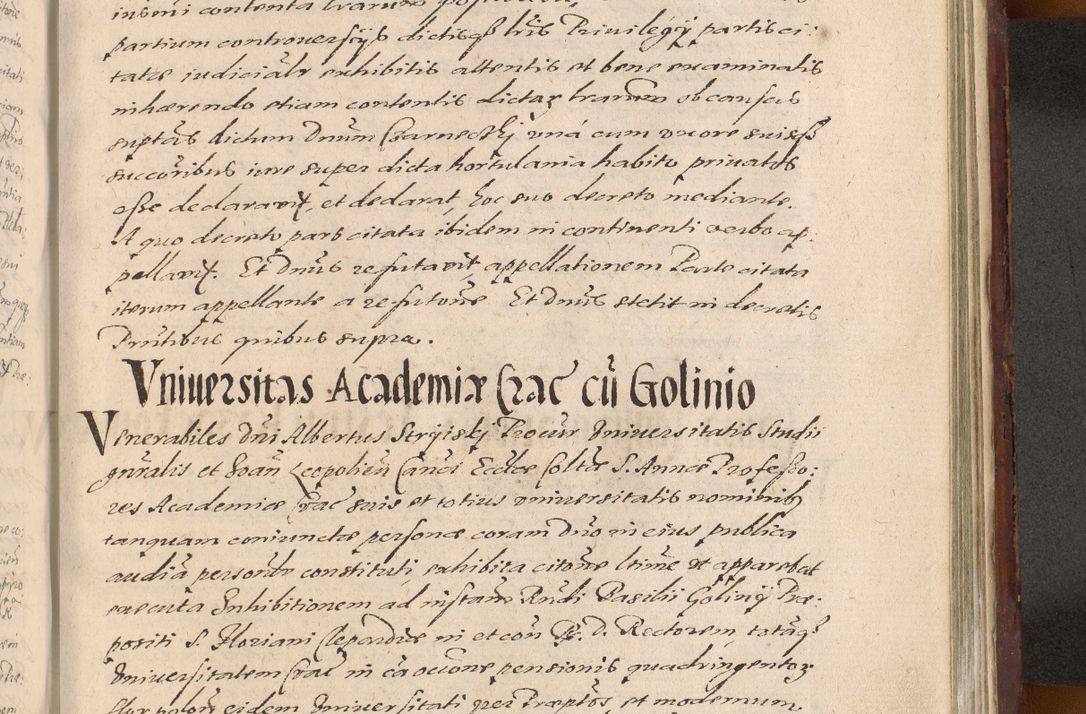 partium controuersijs dictisq̃ lr̃is Priuilegij parte ci:
tatæ iudicialr exhibitis attentis et bene examinatis
inhærendo etiam contentis dictaꝝ lrarum ob causas
sup̃tas dictum Dnũm Czarneczkj vná cum vxore suisq̃
succõribus iure super dicta hortulania habito priuatos
esse declarauit, et declarat, hoc suo decreto mediante.
A quo decreto pars citata ibidem in continenti verbo ap:
pellauit. Et Dnũs refutauit appellationem Parte citata
iterum appellante a refutõne Et Dnũs stetit in decretis
Pñtibus quibus supra.
Vniuersitas Academiæ Crac̃ cũ Golinio
Venerabiles Dñi Albertus Stryiskj Procur̃ Vniuersitatis Studii
gñralis et Joan̄ Leopolien̄ Canci Eccl̃æ Collt̃æ S. Annæ Professo:
res Academiæ Crac̃ suis et totius vniuersitatis nominibꝫ
tanquam coniunctæ personæ coram Dño in eius publica
audiã personlr constituti, exhibita citõne ltime vt apparebat
executa Inhibitionem ad instan̄ Rndi Basilii Golinij Præ:
positi S. Floriani Clepardiæ in et con̄ R. D. Rectorem totaq̃
Vniuersitatem Crac̃ in cã occõne pensionis quadringentoꝝ
flor polon̄ eidem Vniuersitati per Præptõs, et modernum